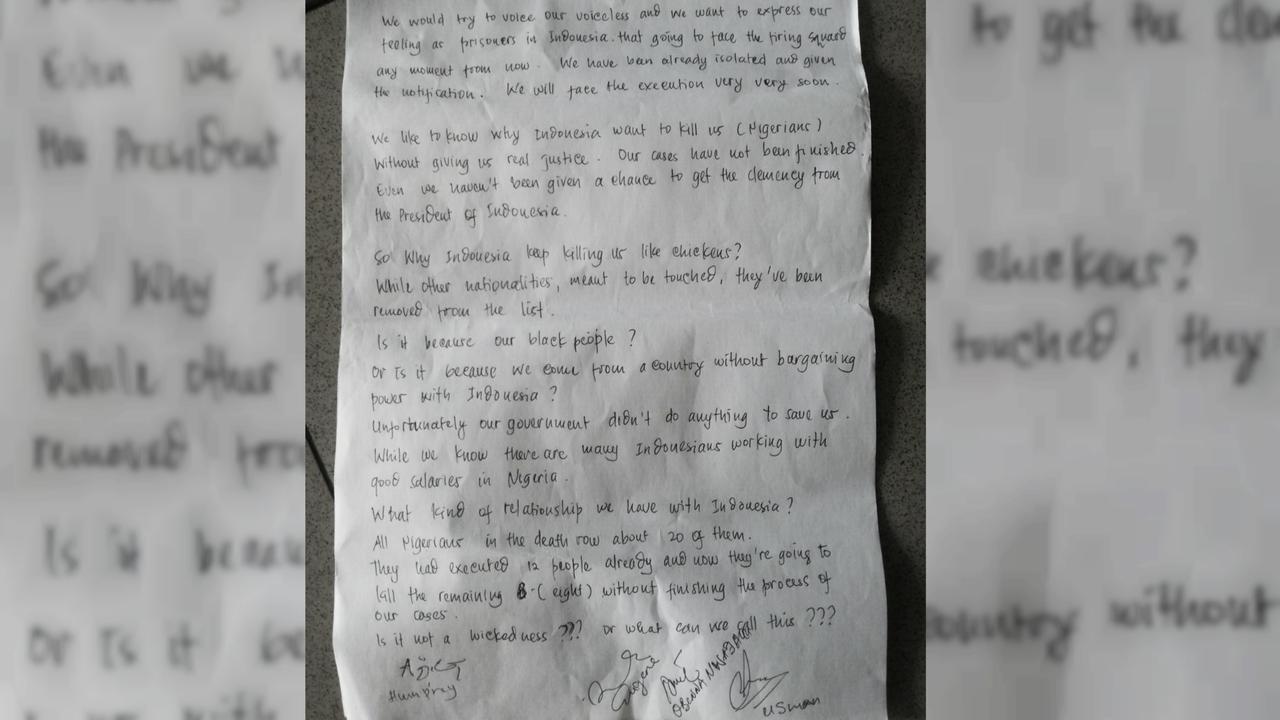 We would try to voice our voiceless and we want to express our
feeling as prisoners in Indonesia that going to face the firing squard
any moment from now. We have been already isolated and given
the notification. We will face the execution very very soon.
We like to know why Indonesia want to kill us (Nigerians)
Without giving us real justice. Our cases have not been finished.
Even we haven't been given a chance to get the clemency from
the President of Indonesia.
So Why Indonesia keep killing us like chickens?
While other nationalities, meant to be touched, they've been
removed from the list.
Is it because our black people?
Or Is it because we come from a country without bargaining
power with Indonesia?
Unfortunately our government didn't do anything to save us.
While we know there are many Indonesians working with
good salaries in Nigeria.
What kind of relationship we have with Indonesia?
All Nigerians in the death row about 20 of them.
They had executed 12 people already and now they're going to
kill the remaining 8-(eight) without finishing the process of
our cases.
Is it not a wickedness ??? or what can we call this ???
Humprey
Eugene
OBINNA NWAJAGU
USman
to get the cle
Even we
the President
So Why In
chickens?
While other
touched, they
removed fro
Is it beca
Or Is it
country without